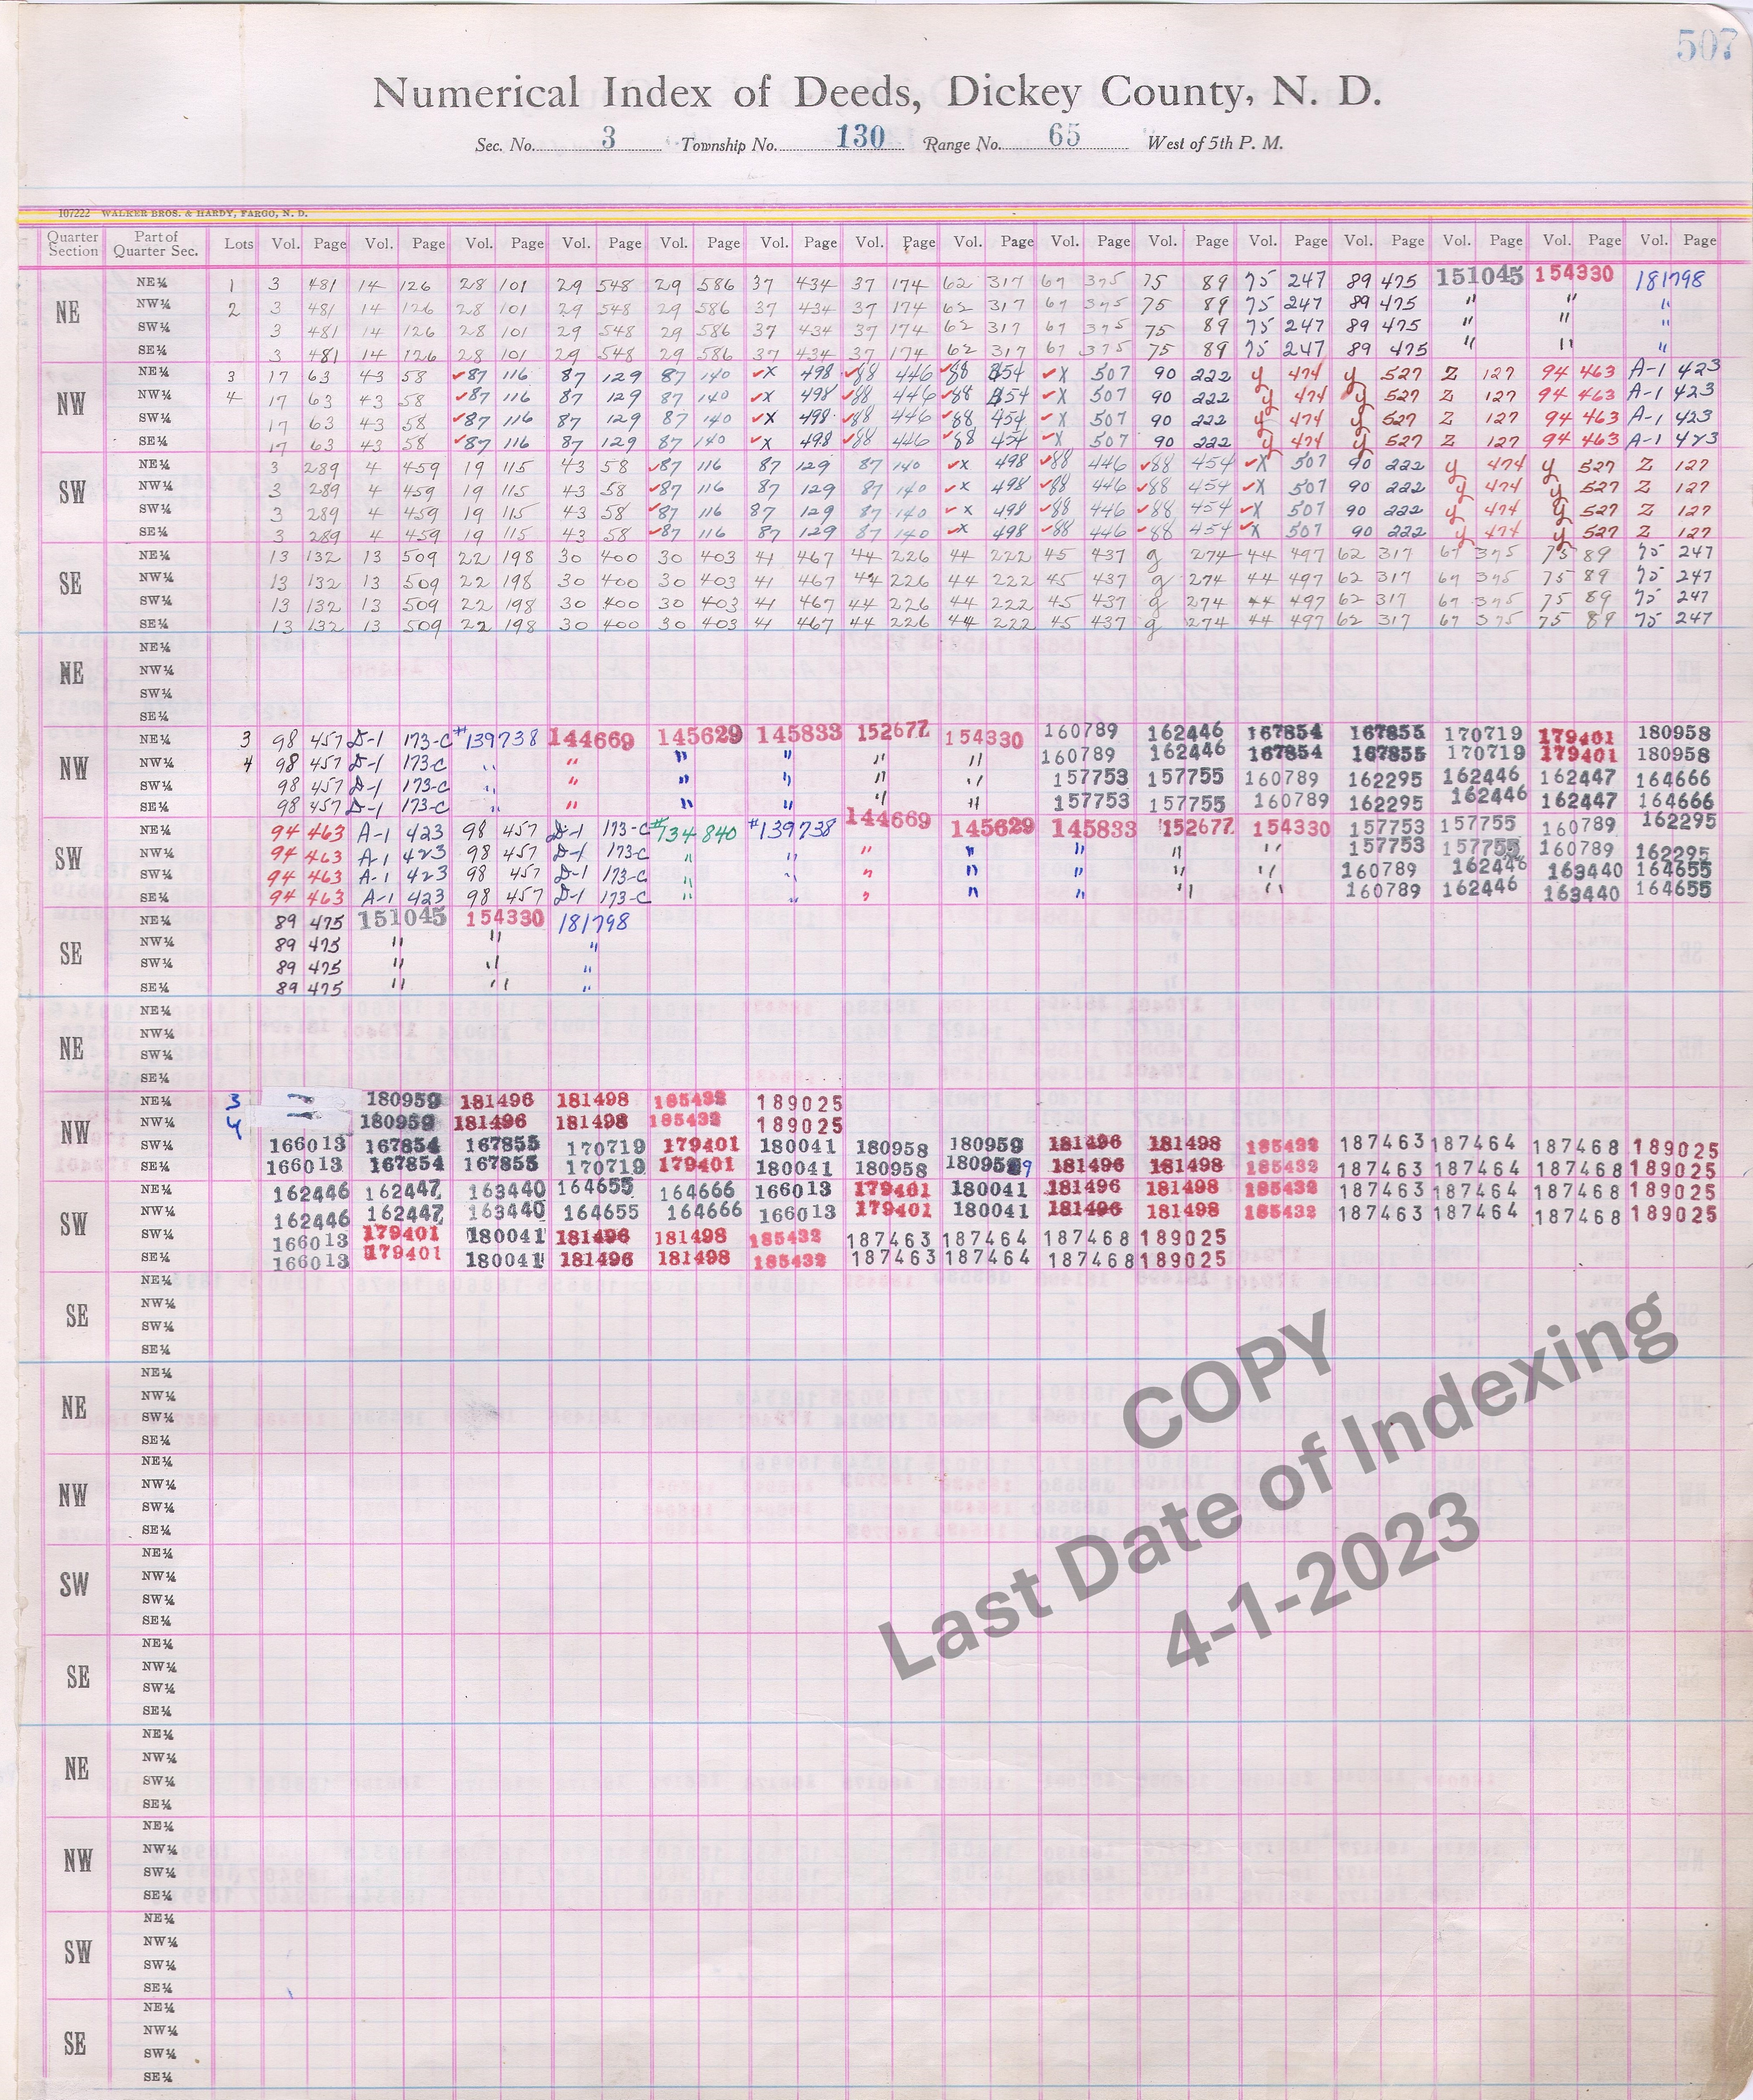 507
Numerical Index of Deeds, Dickey County, N. D.
Sec. No. 3 Township No. 130 Range No. 65 West of 5th P. M.
107222 WALKER BROS. & HARDY, FARGO, N. D.
Quarter Section Part of Quarter Sec. Lots Vol. Page Vol. Page Vol. Page Vol. Page Vol. Page Vol. Page Vol. Page Vol. Page Vol. Page Vol. Page Vol. Page Vol. Page Vol. Page Vol. Page Vol. Page
NE NE¼ 1 3 481 14 126 28 101 29 548 29 586 37 434 37 174 62 317 67 375 75 89 75 247 89 475 151045 154330 181798
NW¼ 2 3 481 14 126 28 101 29 548 29 586 37 434 37 174 62 317 67 375 75 89 75 247 89 475 " " "
SW¼ 3 481 14 126 28 101 29 548 29 586 37 434 37 174 62 317 67 375 75 89 75 247 89 475 " " "
SE¼ 3 481 14 126 28 101 29 548 29 586 37 434 37 174 62 317 67 375 75 89 75 247 89 475 " " "
NW NE¼ 3 17 63 43 58 ✓87 116 87 129 87 140 ✓X 498 ✓88 446 ✓88 454 ✓X 507 90 222 y 474 y 527 Z 127 94 463 A-1 423
NW¼ 4 17 63 43 58 ✓87 116 87 129 87 140 ✓X 498 ✓88 446 ✓88 454 ✓X 507 90 222 y 474 y 527 Z 127 94 463 A-1 423
SW¼ 17 63 43 58 ✓87 116 87 129 87 140 ✓X 498 ✓88 446 ✓88 454 ✓X 507 90 222 y 474 y 527 Z 127 94 463 A-1 423
SE¼ 17 63 43 58 ✓87 116 87 129 87 140 ✓X 498 ✓88 446 ✓88 454 ✓X 507 90 222 y 474 y 527 Z 127 94 463 A-1 423
SW NE¼ 3 289 4 459 19 115 43 58 ✓87 116 87 129 87 140 ✓X 498 ✓88 446 ✓88 454 ✓X 507 90 222 y 474 y 527 Z 127
NW¼ 3 289 4 459 19 115 43 58 ✓87 116 87 129 87 140 ✓X 498 ✓88 446 ✓88 454 ✓X 507 90 222 y 474 y 527 Z 127
SW¼ 3 289 4 459 19 115 43 58 ✓87 116 87 129 87 140 ✓X 498 ✓88 446 ✓88 454 ✓X 507 90 222 y 474 y 527 Z 127
SE¼ 3 289 4 459 19 115 43 58 ✓87 116 87 129 87 140 ✓X 498 ✓88 446 ✓88 454 ✓X 507 90 222 y 474 y 527 Z 127
SE NE¼ 13 132 13 509 22 198 30 400 30 403 41 467 44 226 44 222 45 437 g 274 44 497 62 317 67 375 75 89 75 247
NW¼ 13 132 13 509 22 198 30 400 30 403 41 467 44 226 44 222 45 437 g 274 44 497 62 317 67 375 75 89 75 247
SW¼ 13 132 13 509 22 198 30 400 30 403 41 467 44 226 44 222 45 437 g 274 44 497 62 317 67 375 75 89 75 247
SE¼ 13 132 13 509 22 198 30 400 30 403 41 467 44 226 44 222 45 437 g 274 44 497 62 317 67 375 75 89 75 247
NE NE¼
NW¼
SW¼
SE¼
NW NE¼ 3 98 457 D-1 173-C #139738 144669 145629 145833 152677 154330 160789 162446 167854 167855 170719 179401 180958
NW¼ 4 98 457 D-1 173-C " " " " " " 160789 162446 167854 167855 170719 179401 180958
SW¼ 98 457 D-1 173-C " " " " " " 157753 157755 160789 162295 162446 162447 164666
SE¼ 98 457 D-1 173-C " " " " " " 157753 157755 160789 162295 162446 162447 164666
SW NE¼ 94 463 A-1 423 98 457 D-1 173-C #134840 #139738 144669 145629 145833 152677 154330 157753 157755 160789 162295
NW¼ 94 463 A-1 423 98 457 D-1 173-C " " " " " " " 157753 157755 160789 162295
SW¼ 94 463 A-1 423 98 457 D-1 173-C " " " " " " " 160789 162446 163440 164655
SE¼ 94 463 A-1 423 98 457 D-1 173-C " " " " " " " 160789 162446 163440 164655
SE NE¼ 89 475 151045 154330 181798
NW¼ 89 475 " " "
SW¼ 89 475 " " "
SE¼ 89 475 " " "
NE NE¼
NW¼
SW¼
SE¼
NW NE¼ 3 180959 181496 181498 185432 189025
NW¼ 4 180959 181496 181498 185432 189025
SW¼ 166013 167854 167855 170719 179401 180041 180958 180959 181496 181498 185432 187463 187464 187468 189025
SE¼ 166013 167854 167855 170719 179401 180041 180958 180959 181496 181498 185432 187463 187464 187468 189025
SW NE¼ 162446 162447 163440 164655 164666 166013 179401 180041 181496 181498 185432 187463 187464 187468 189025
NW¼ 162446 162447 163440 164655 164666 166013 179401 180041 181496 181498 185432 187463 187464 187468 189025
SW¼ 166013 179401 180041 181496 181498 185432 187463 187464 187468 189025
SE¼ 166013 179401 180041 181496 181498 185432 187463 187464 187468 189025
SE NE¼
NW¼
SW¼
SE¼
NE NE¼
NW¼
SW¼
SE¼
NW NE¼
NW¼
SW¼
SE¼
SW NE¼
NW¼
SW¼
SE¼
SE NE¼
NW¼
SW¼
SE¼
NE NE¼
NW¼
SW¼
SE¼
NW NE¼
NW¼
SW¼
SE¼
SW NE¼
NW¼
SW¼
SE¼
SE NE¼
NW¼
SW¼
SE¼
COPY
Last Date of Indexing
4-1-2023